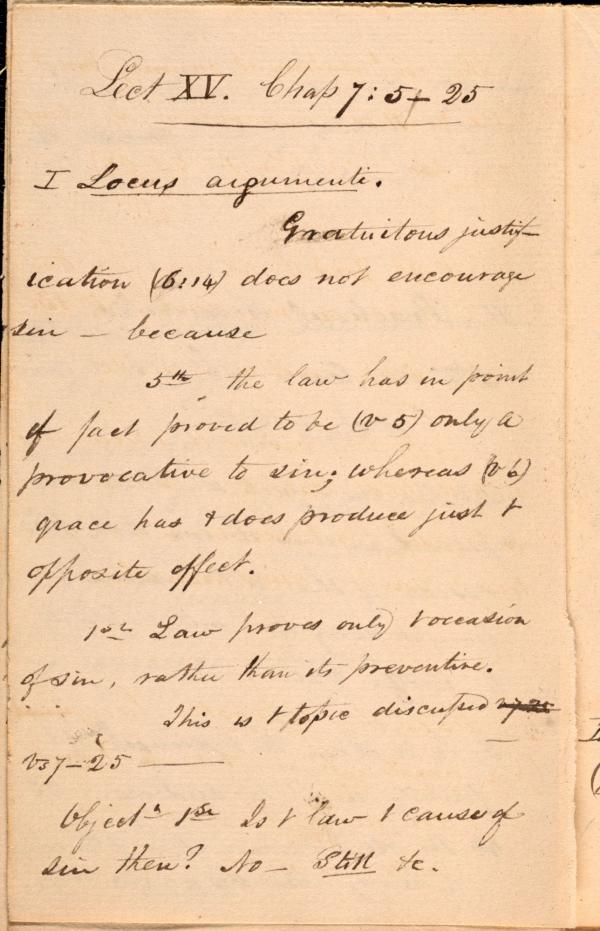 Lect XV. Chap 7:5-25
I Locus argumenti.
Gratuitous justif-
ication (6:14) does not encourage
sin - because
5th the law has in point
of fact proved to be (v 5) only a
provocative to sin; whereas (v 6)
grace has & does produce just t
opposite effect.
1st Law proves only t occasion
of sin, rather than its preventive.
This is t topic discussed
vs 7-25
Object n 1st Is t law t cause of
sin then? No - Still &c.